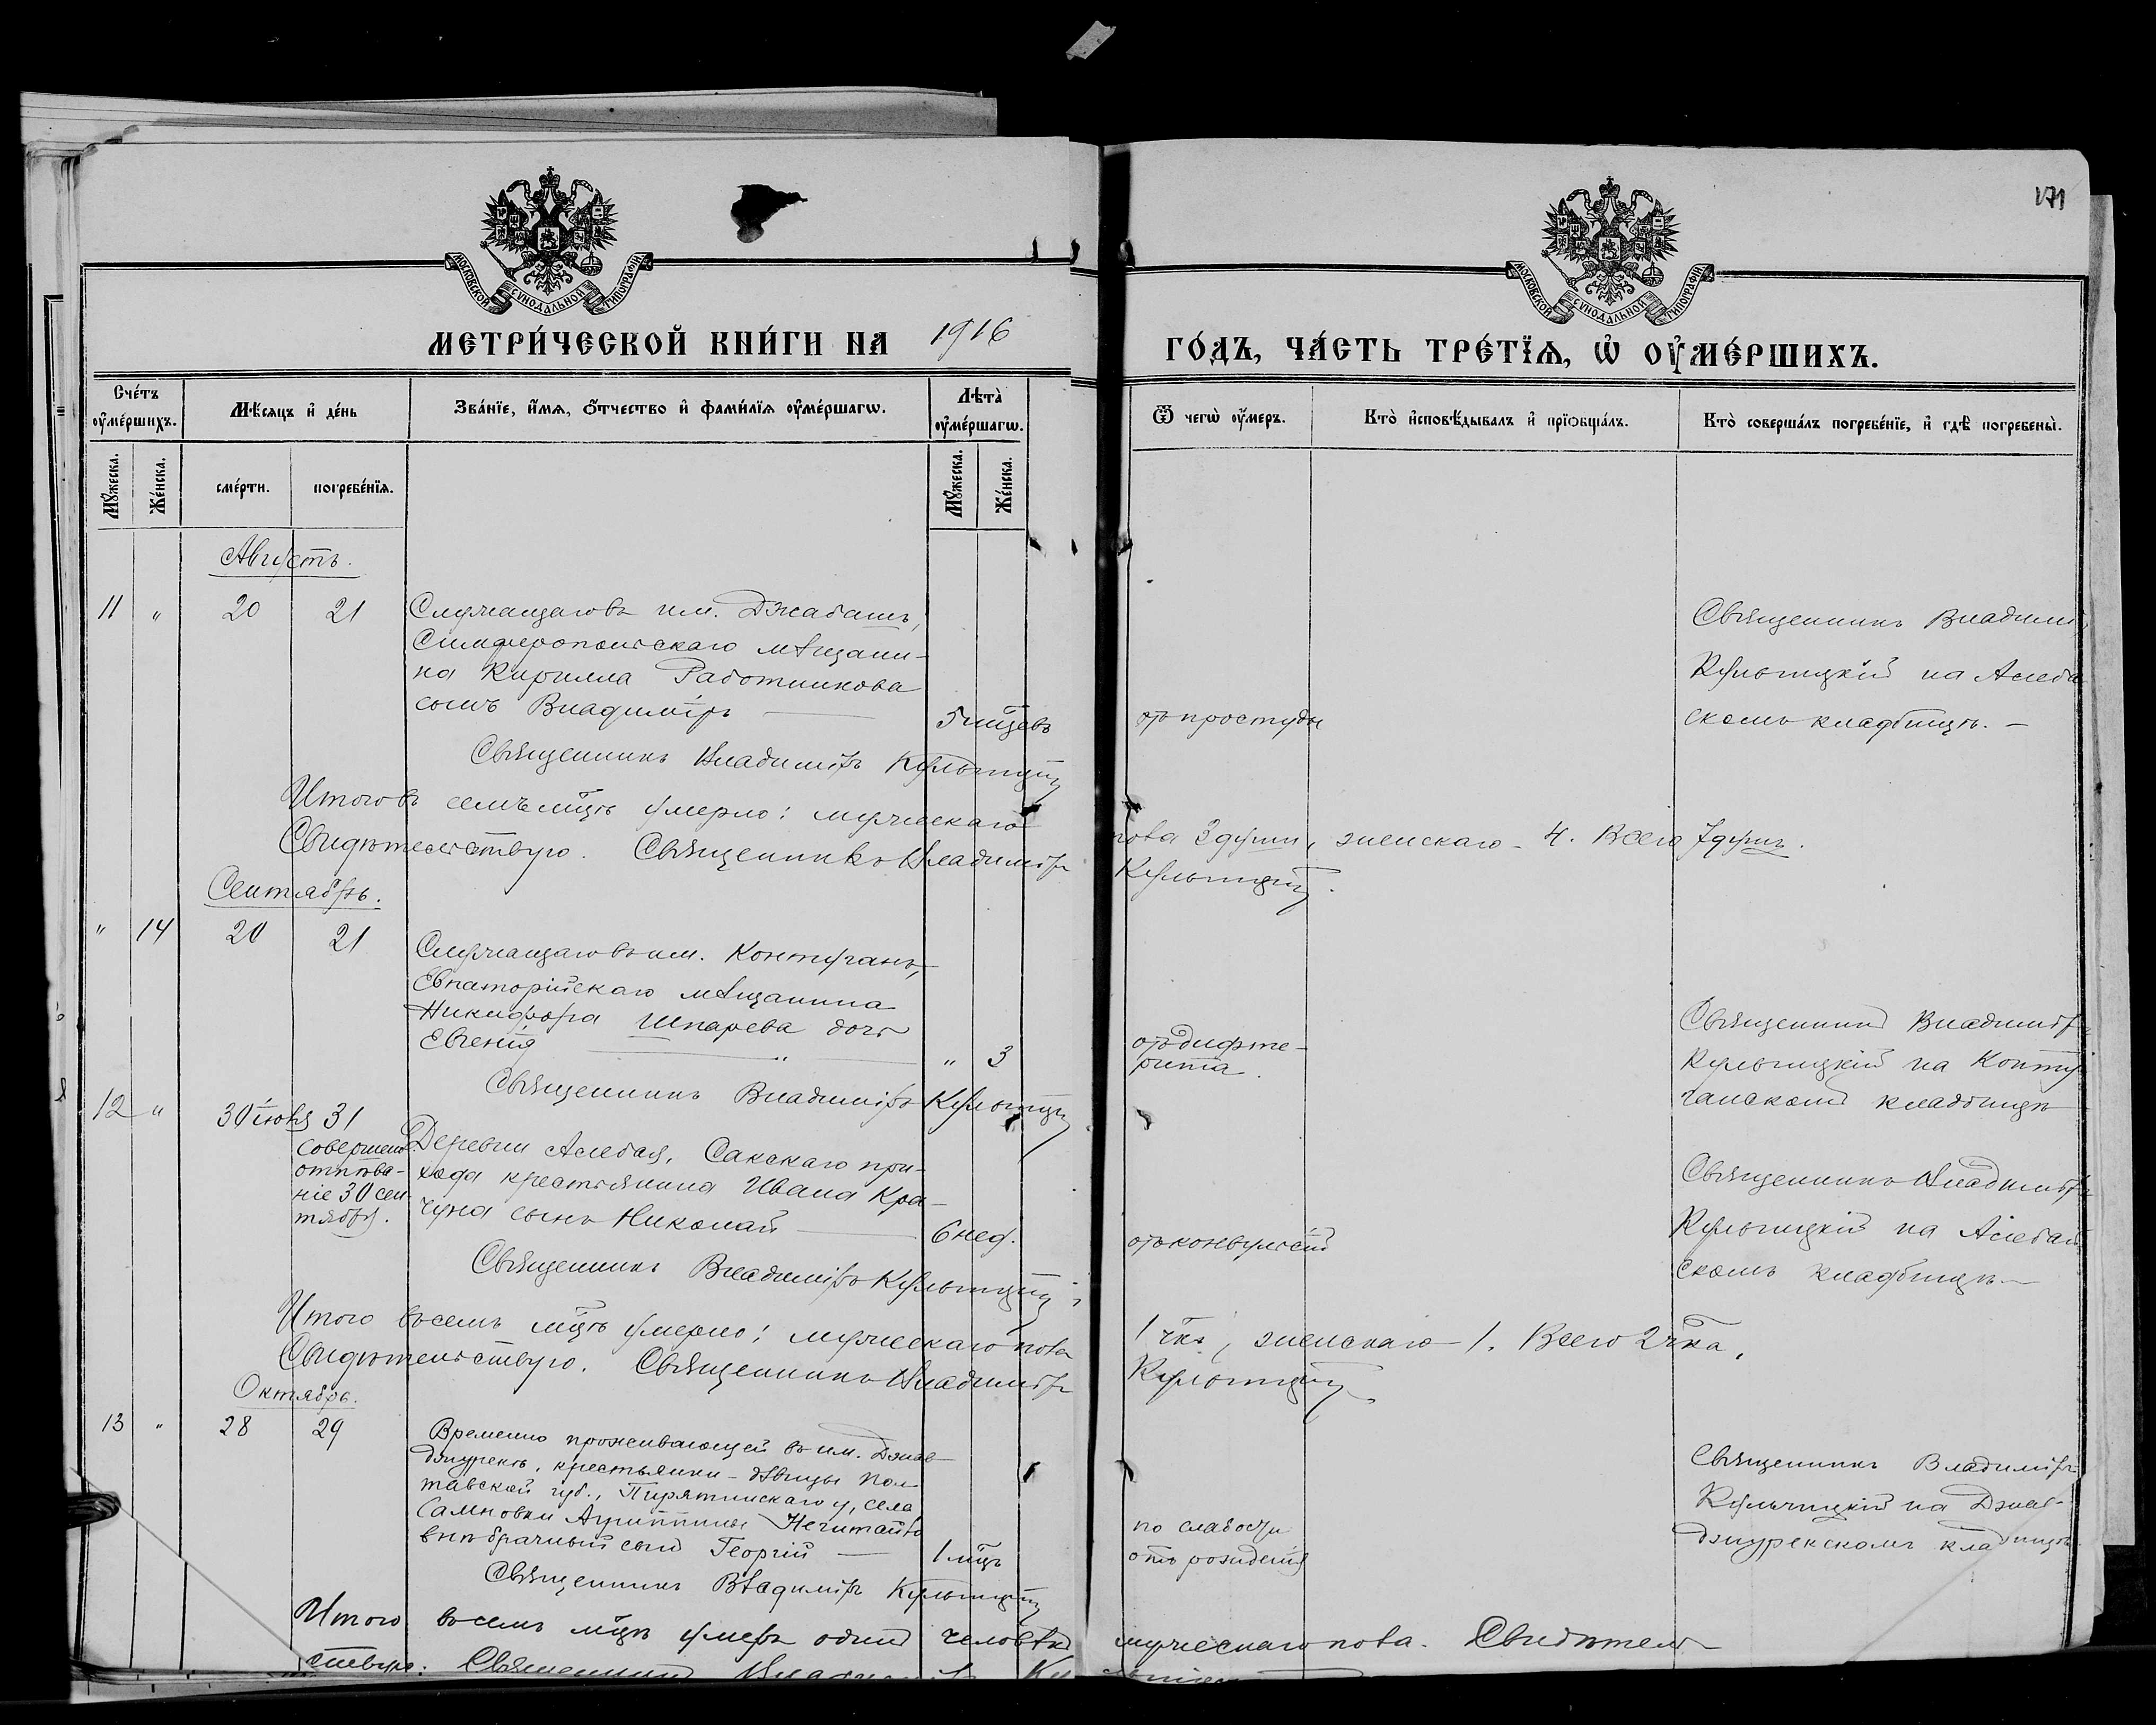 171
МОСКОВСКОЙ СѴНОДАЛЬНОЙ ТИПОГРАФІИ
МОСКОВСКОЙ СѴНОДАЛЬНОЙ ТИПОГРАФІИ
МЕТРИ́ЧЕСКОЙ КНИ́ГИ НА 1916 ГО́ДЪ, ЧА́СТЬ ТРЕ́ТЇѦ, Ѽ ОУ҆МЕ́РШИХЪ.
Сче́тъ оу҆ме́ршихъ.
Мѣ́сяцъ и҆ де́нь
Зва́нїе, и҆́мѧ, ѻ҆́тчество и҆ фами́лїѧ оу҆ме́ршагѡ.
Лѣта̀ оу҆ме́ршагѡ.
Ѿ чегѡ̀ оу҆́меръ.
Кто̀ и҆сповѣ́дывалъ и҆ прїѡбща́лъ.
Кто̀ соверша́лъ погребе́нїе, и҆ гдѣ̀ погребены̀.
Мꙋ́жеска.
Же́нска.
сме́рти.
погребе́нїѧ.
Мꙋ́жеска.
Же́нска.
Августъ.
11 " 20 21 Служащаго въ им. Джабашъ,
Симферопольскаго мѣщани-
на Кирилла Работникова
сынъ Владиміръ — 5 мцевъ
отъ простуды
Священникъ Владимі
Кульчицкій на Аслеба
скомъ кладбищѣ. —
Священникъ Владиміръ Кульчицкій
Итого въ семъ мцѣ умерло: мужескаго пола 3 души, женскаго - 4. Всего 7 душъ.
Свидѣтельствую. Священникъ Владиміръ Кульчицкій.
Сентябрь.
" 14 20 21 Служащаго въ им. Контуганъ,
Евпаторійскаго мѣщанина
Никифора Шпарева дочь
Евгенія — " — " 3
отъ дифте-
рита.
Священникъ Владиміръ
Кульчицкій на Конту
ганскомъ кладбищѣ
Священникъ Владиміръ Кульчицкій
12 " 30 іюля 31
Совершено
отпѣва-
ніе 30 сен
тября.
Деревни Аслебая, Сакскаго при-
хода крестьянина Ивана Кра-
чуна сынъ Николай — 6 нед.
отъ конвульсій
Священникъ Владиміръ
Кульчицкій на Аслебай
скомъ кладбищѣ —
Священникъ Владиміръ Кульчицкій
Итого въ семъ мцѣ умерло: мужескаго пола 1 чкъ, женскаго - 1. Всего 2 чка.
Свидѣтельствую. Священникъ Владиміръ Кульчицкій
Октябрь.
13 " 28 29 Временно проживающей въ им. Джав-
джурекъ, крестьянки - дѣвицы Пол
тавской губ., Пирятинскаго у, села
Агриппины
внѣбрачный сынъ Георгій — 1 мцъ
по слабости
отъ рожденія
Священникъ Владиміръ
Кульчицкій на Джав-
джурекскомъ кладбищѣ.
Священникъ Владиміръ Кульчицкій
Итого въ семъ мцѣ умеръ одинъ человѣкъ мужескаго пола. Свидѣтель
ствую. Священникъ